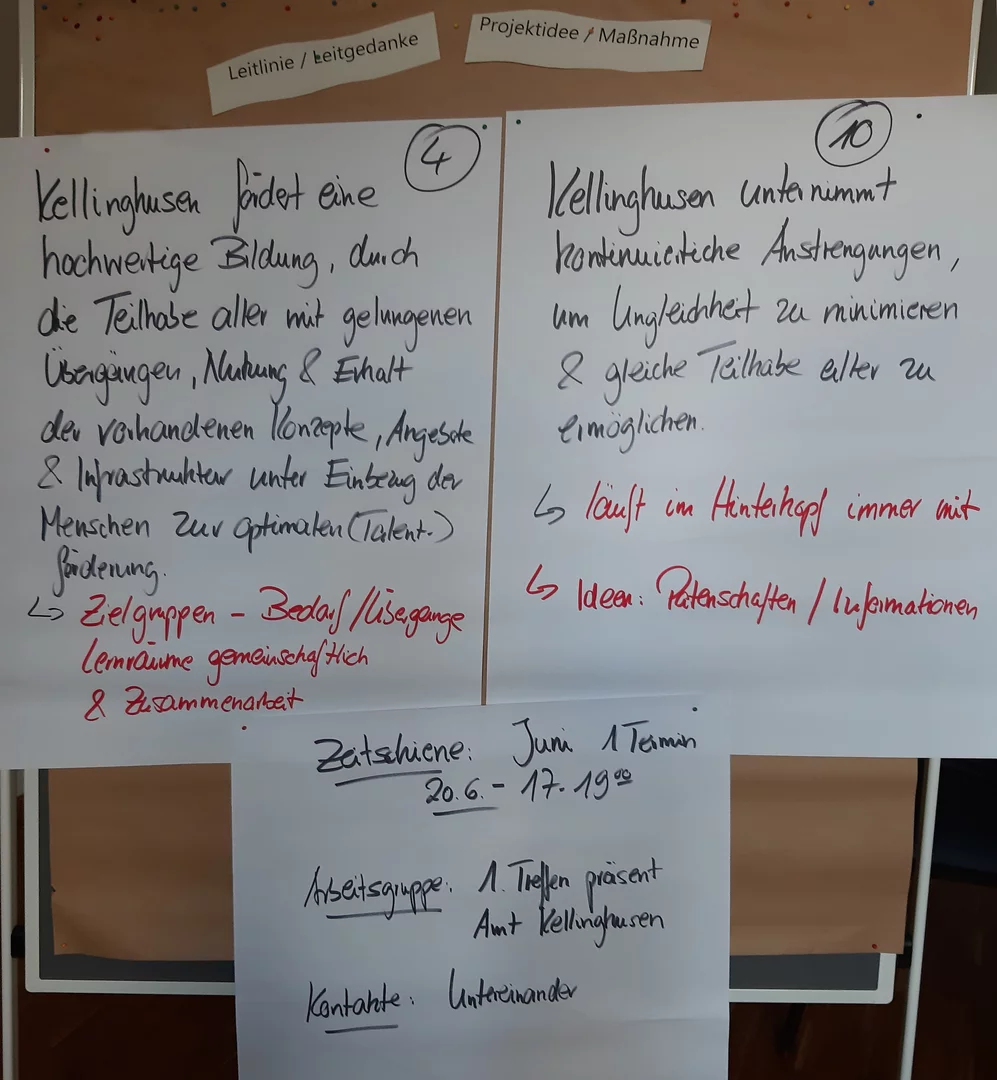 Leitlinie / Leitgedanke
Projektidee / Maßnahme
4
Kellinghusen fördert eine
hochwertige Bildung, durch
die Teilhabe aller mit gelungenen
Übergängen, Nutzung & Erhalt
der vorhandenen Konzepte, Angebote
& Infrastruktur unter Einbezug der
Menschen zur optimalen (Talent-)
förderung.
↳ Zielgruppen - Bedarf / Übergänge
Lernräume gemeinschaftlich
& Zusammenarbeit
10
Kellinghusen unternimmt
kontinuierliche Anstrengungen,
um Ungleichheit zu minimieren
& gleiche Teilhabe aller zu
ermöglichen.
↳ läuft im Hinterkopf immer mit
↳ Ideen: Patenschaften / Informationen
Zeitschiene: Juni 1 Termin
20.6. - 17-19⁰⁰
Arbeitsgruppe: 1. Treffen präsent
Amt Kellinghusen
Kontakte: Untereinander